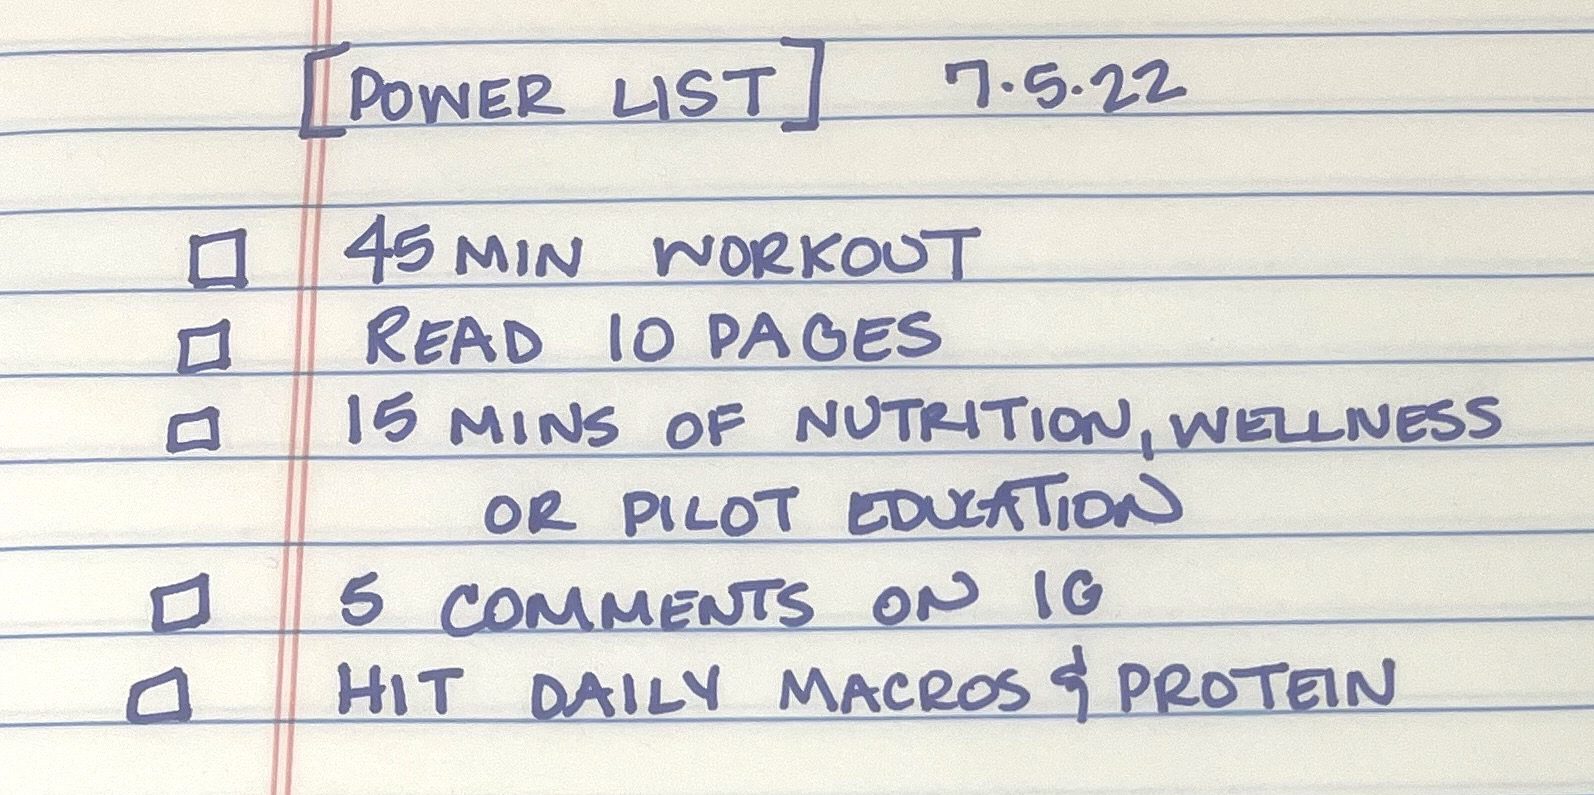 [POWER LIST] 7.5.22
45 MIN WORKOUT
READ 10 PAGES
15 MINS OF NUTRITION, WELLNESS
OR PILOT EDUCATION
5 COMMENTS ON IG
HIT DAILY MACROS & PROTEIN